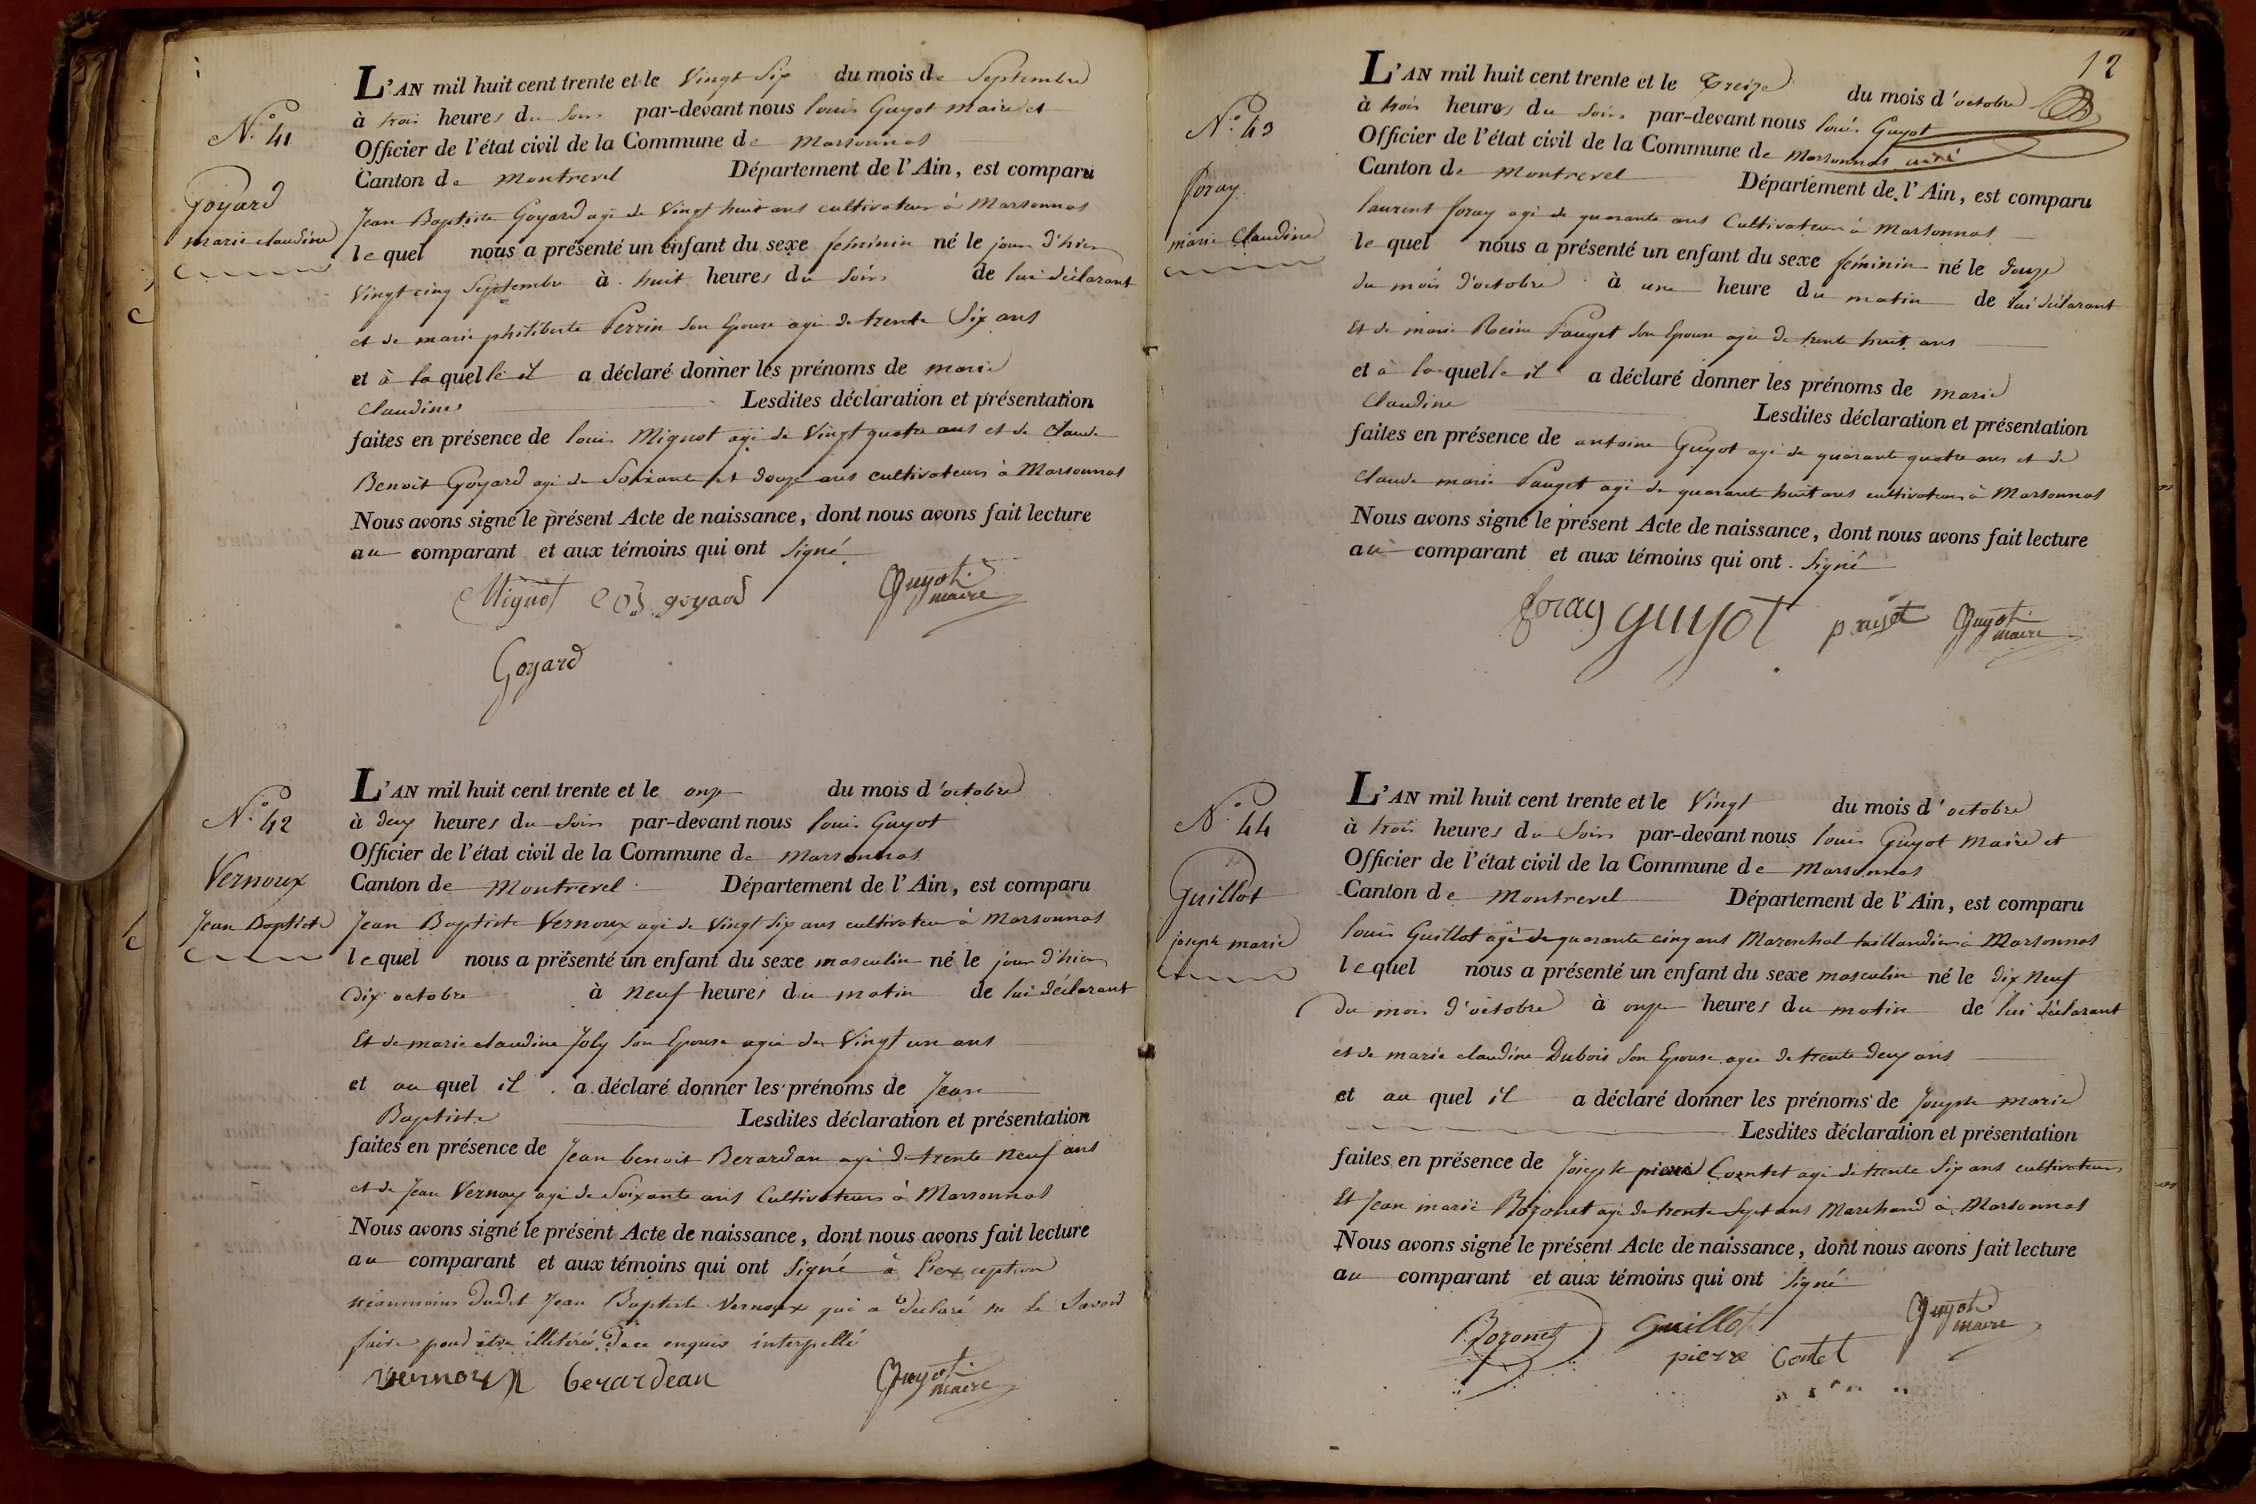 N.o 41
Goyard
marie claudine
L'AN mil huit cent trente et le Vingt Six du mois de Septembre
à trois heures du soir par-devant nous louis Guyot maire et
Officier de l'état civil de la Commune de Marsonnas
Canton de Montrevel Département de l'Ain, est comparu
Jean Baptiste Goyard agé de Vingt huit ans cultivateur à Marsonnas
lequel nous a présenté un enfant du sexe feminin né le jour d'hier
Vingt cinq Septembre à huit heures du soir de lui déclarant
et de marie philiberte Perrin son Epouse agée de trente Six ans
et à laquelle il a déclaré donner les prénoms de marie
Claudine Lesdites déclaration et présentation
faites en présence de louis Mignot agé de Vingt quatre ans et de Claude
Benoit Goyard agé de Soixante et douze ans cultivateurs à Marsonnas
Nous avons signé le présent Acte de naissance, dont nous avons fait lecture
au comparant et aux témoins qui ont Signé
Mignot C B goyard Guyot maire
Goyard
N.o 42
Vernoux
Jean Baptiste
L'AN mil huit cent trente et le onze du mois d'octobre
à deux heures du Soir par-devant nous louis Guyot
Officier de l'état civil de la Commune de Marsonnas
Canton de Montrevel Département de l'Ain, est comparu
Jean Baptiste Vernoux agé de Vingt Six ans cultivateur à Marsonnas
lequel nous a présenté un enfant du sexe masculin né le jour d'hier
dix octobre à Neuf heures du matin de lui déclarant
Et de marie claudine Joly son Epouse agée de Vingt un ans
et au quel il a déclaré donner les prénoms de Jean
Baptiste Lesdites déclaration et présentation
faites en présence de Jean benoit Berardan agé de trente Neuf ans
et de Jean Vernoux agé de Soixante ans Cultivateurs à Marsonnas
Nous avons signé le présent Acte de naissance, dont nous avons fait lecture
au comparant et aux témoins qui ont Signé à l'exception
néanmoins dudit Jean Baptiste Vernoux qui a déclaré ne le Savoir
faire pour être illitéré de ce enquis interpellé
vernoux berardean Guyot maire
12
N.o 43
foray
marie Claudine
L'AN mil huit cent trente et le Treize du mois d'octobre
à trois heures du soir par-devant nous louis Guyot
Officier de l'état civil de la Commune de Marsonnas
Canton de Montrevel Département de l'Ain, est comparu
laurent foray agé de quarante ans Cultivateur à Marsonnas
lequel nous a présenté un enfant du sexe féminin né le douze
du mois d'octobre à une heure du matin de lui déclarant
Et de marie Reine Pauget son Epouse agée de trente huit ans
et à laquelle il a déclaré donner les prénoms de marie
Claudine Lesdites déclaration et présentation
faites en présence de antoine Guyot agé de quarante quatre ans et de
Claude marie Pauget agé de quarante huit ans cultivateurs à Marsonnas
Nous avons signé le présent Acte de naissance, dont nous avons fait lecture
au comparant et aux témoins qui ont Signé
foray guyot pauget Guyot maire
N.o 44
Guillot
joseph marie
L'AN mil huit cent trente et le Vingt du mois d'octobre
à trois heures du Soir par-devant nous louis Guyot Maire et
Officier de l'état civil de la Commune de Marsonnas
Canton de Montrevel Département de l'Ain, est comparu
louis Guillot agé de quarante cinq ans Mareschal taillandier à Marsonnas
lequel nous a présenté un enfant du sexe masculin né le dix Neuf
du mois d'octobre à onze heures du matin de lui déclarant
et de marie claudine Dubois son Epouse agée de trente deux ans
et au quel il a déclaré donner les prénoms de Joseph marie
Lesdites déclaration et présentation
faites en présence de Joseph pierre Contet agé de trente Six ans cultivateur
Et Jean marie Bozonet agé de trente Sept ans Marchand à Marsonnas
Nous avons signé le présent Acte de naissance, dont nous avons fait lecture
au comparant et aux témoins qui ont Signé
Bozonet Guillot Guyot maire
pierre Contet